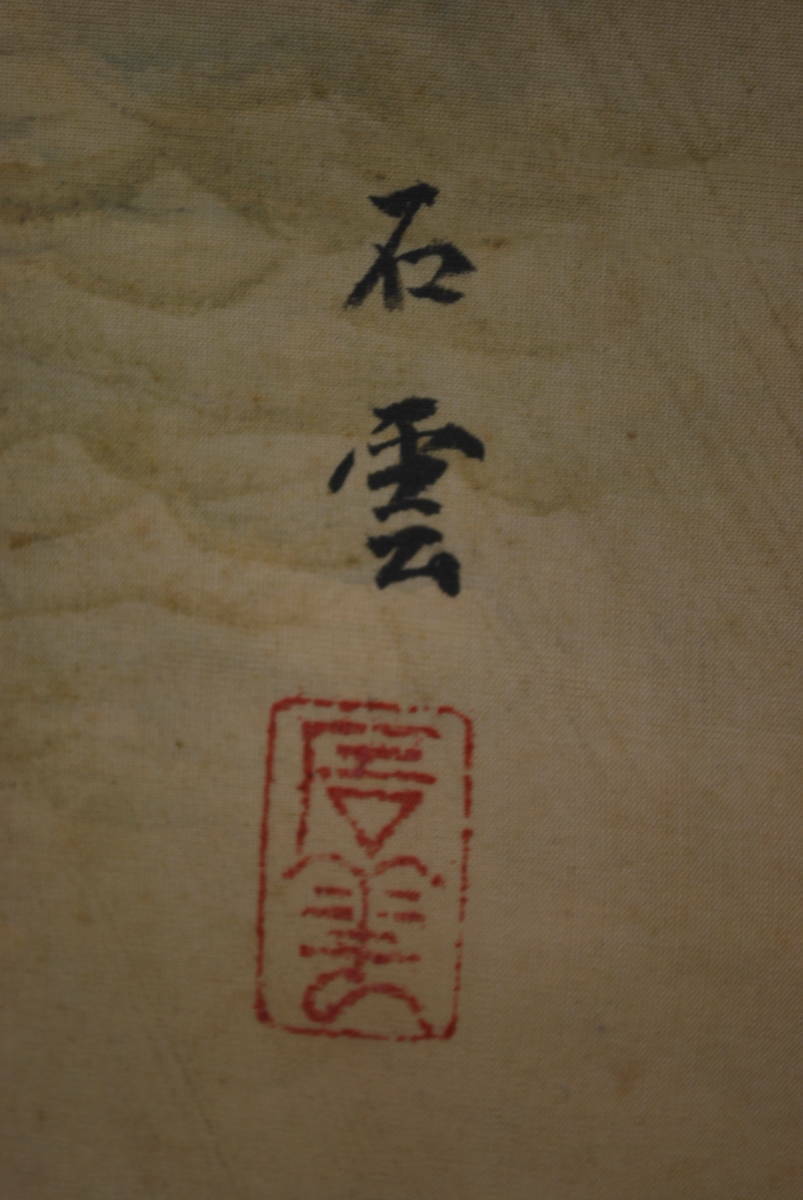 石雲
石雲